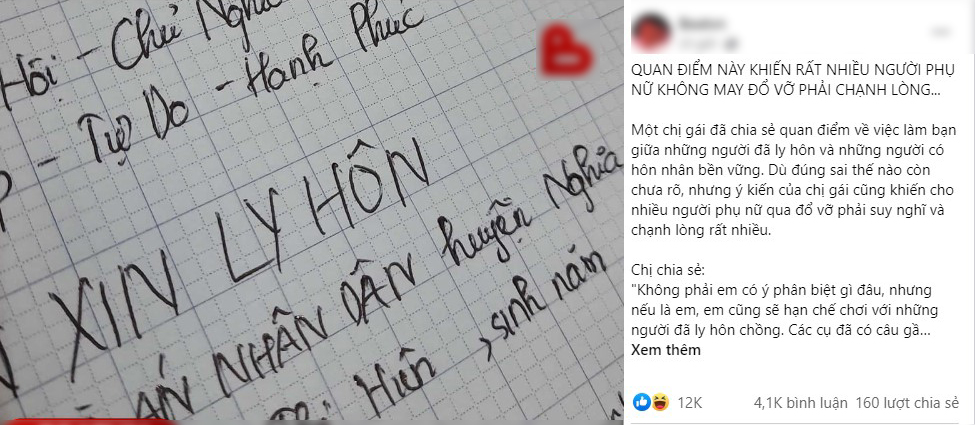 Hội - Chủ Nghĩa
- Tự Do - Hạnh Phúc
XIN LY HÔN
ÁN NHÂN DÂN huyện Nghĩa
Hiên , sinh năm
QUAN ĐIỂM NÀY KHIẾN RẤT NHIỀU NGƯỜI PHỤ
NỮ KHÔNG MAY ĐỔ VỠ PHẢI CHẠNH LÒNG...
Một chị gái đã chia sẻ quan điểm về việc làm bạn
giữa những người đã ly hôn và những người có
hôn nhân bền vững. Dù đúng sai thế nào còn
chưa rõ, nhưng ý kiến của chị gái cũng khiến cho
nhiều người phụ nữ qua đổ vỡ phải suy nghĩ và
chạnh lòng rất nhiều.
Chị chia sẻ:
"Không phải em có ý phân biệt gì đâu, nhưng
nếu là em, em cũng sẽ hạn chế chơi với những
người đã ly hôn chồng. Các cụ đã có câu gầ...
Xem thêm
12K 4,1K bình luận 160 lượt chia sẻ